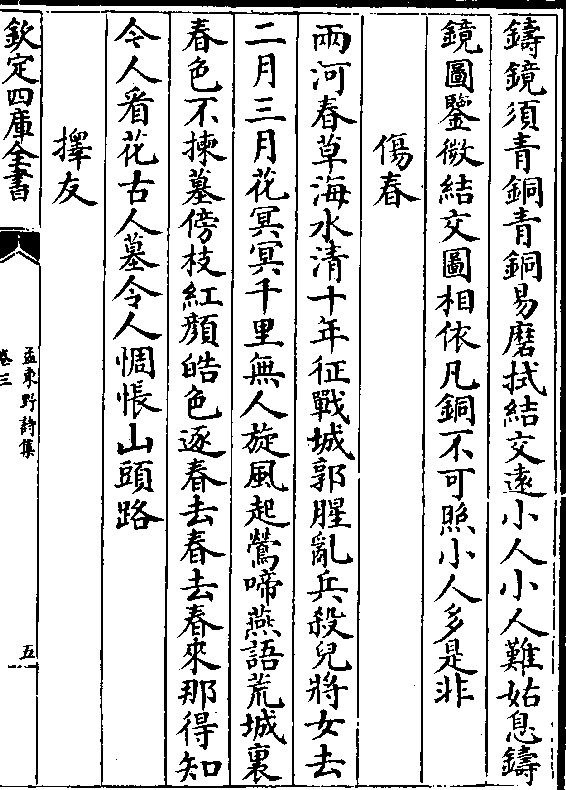 鑄鏡須青銅青銅易磨拭結交遠小人小人難姑息鑄
鏡圖鑒微結交圖相依凡銅不可照小人多是非
傷春
兩河春草海水清十年征戰城郭腥亂兵殺兒將女去
二月三月花冥冥千里無人旋風起鶯啼燕語荒城裏
春色不揀墓傍枝紅顔皓色逐春去春去春來那得知
令人看花古人墓令人惆悵山頭路
擇友
欽定四庫全書
孟東野詩集
卷三
五